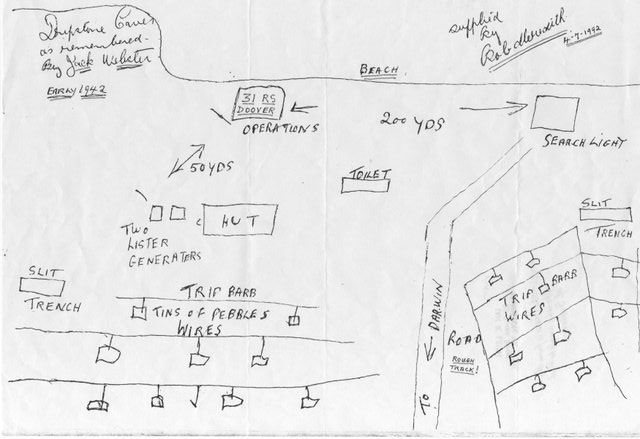 Dripstone Caves
as remembered
By Jack Webster
EARLY 1942
supplied
by
Rob Meredith
4-7-1992
BEACH
31 RS
DOOVER
OPERATIONS
200 YDS
SEARCH LIGHT
50 YDS
TOILET
TWO
LISTER
GENERATERS
HUT
SLIT
TRENCH
SLIT
TRENCH
TRIP BARB
TINS OF PEBBLES
WIRES
TRIP BARB
WIRES
TO DARWIN
ROAD
ROUGH
TRACK!